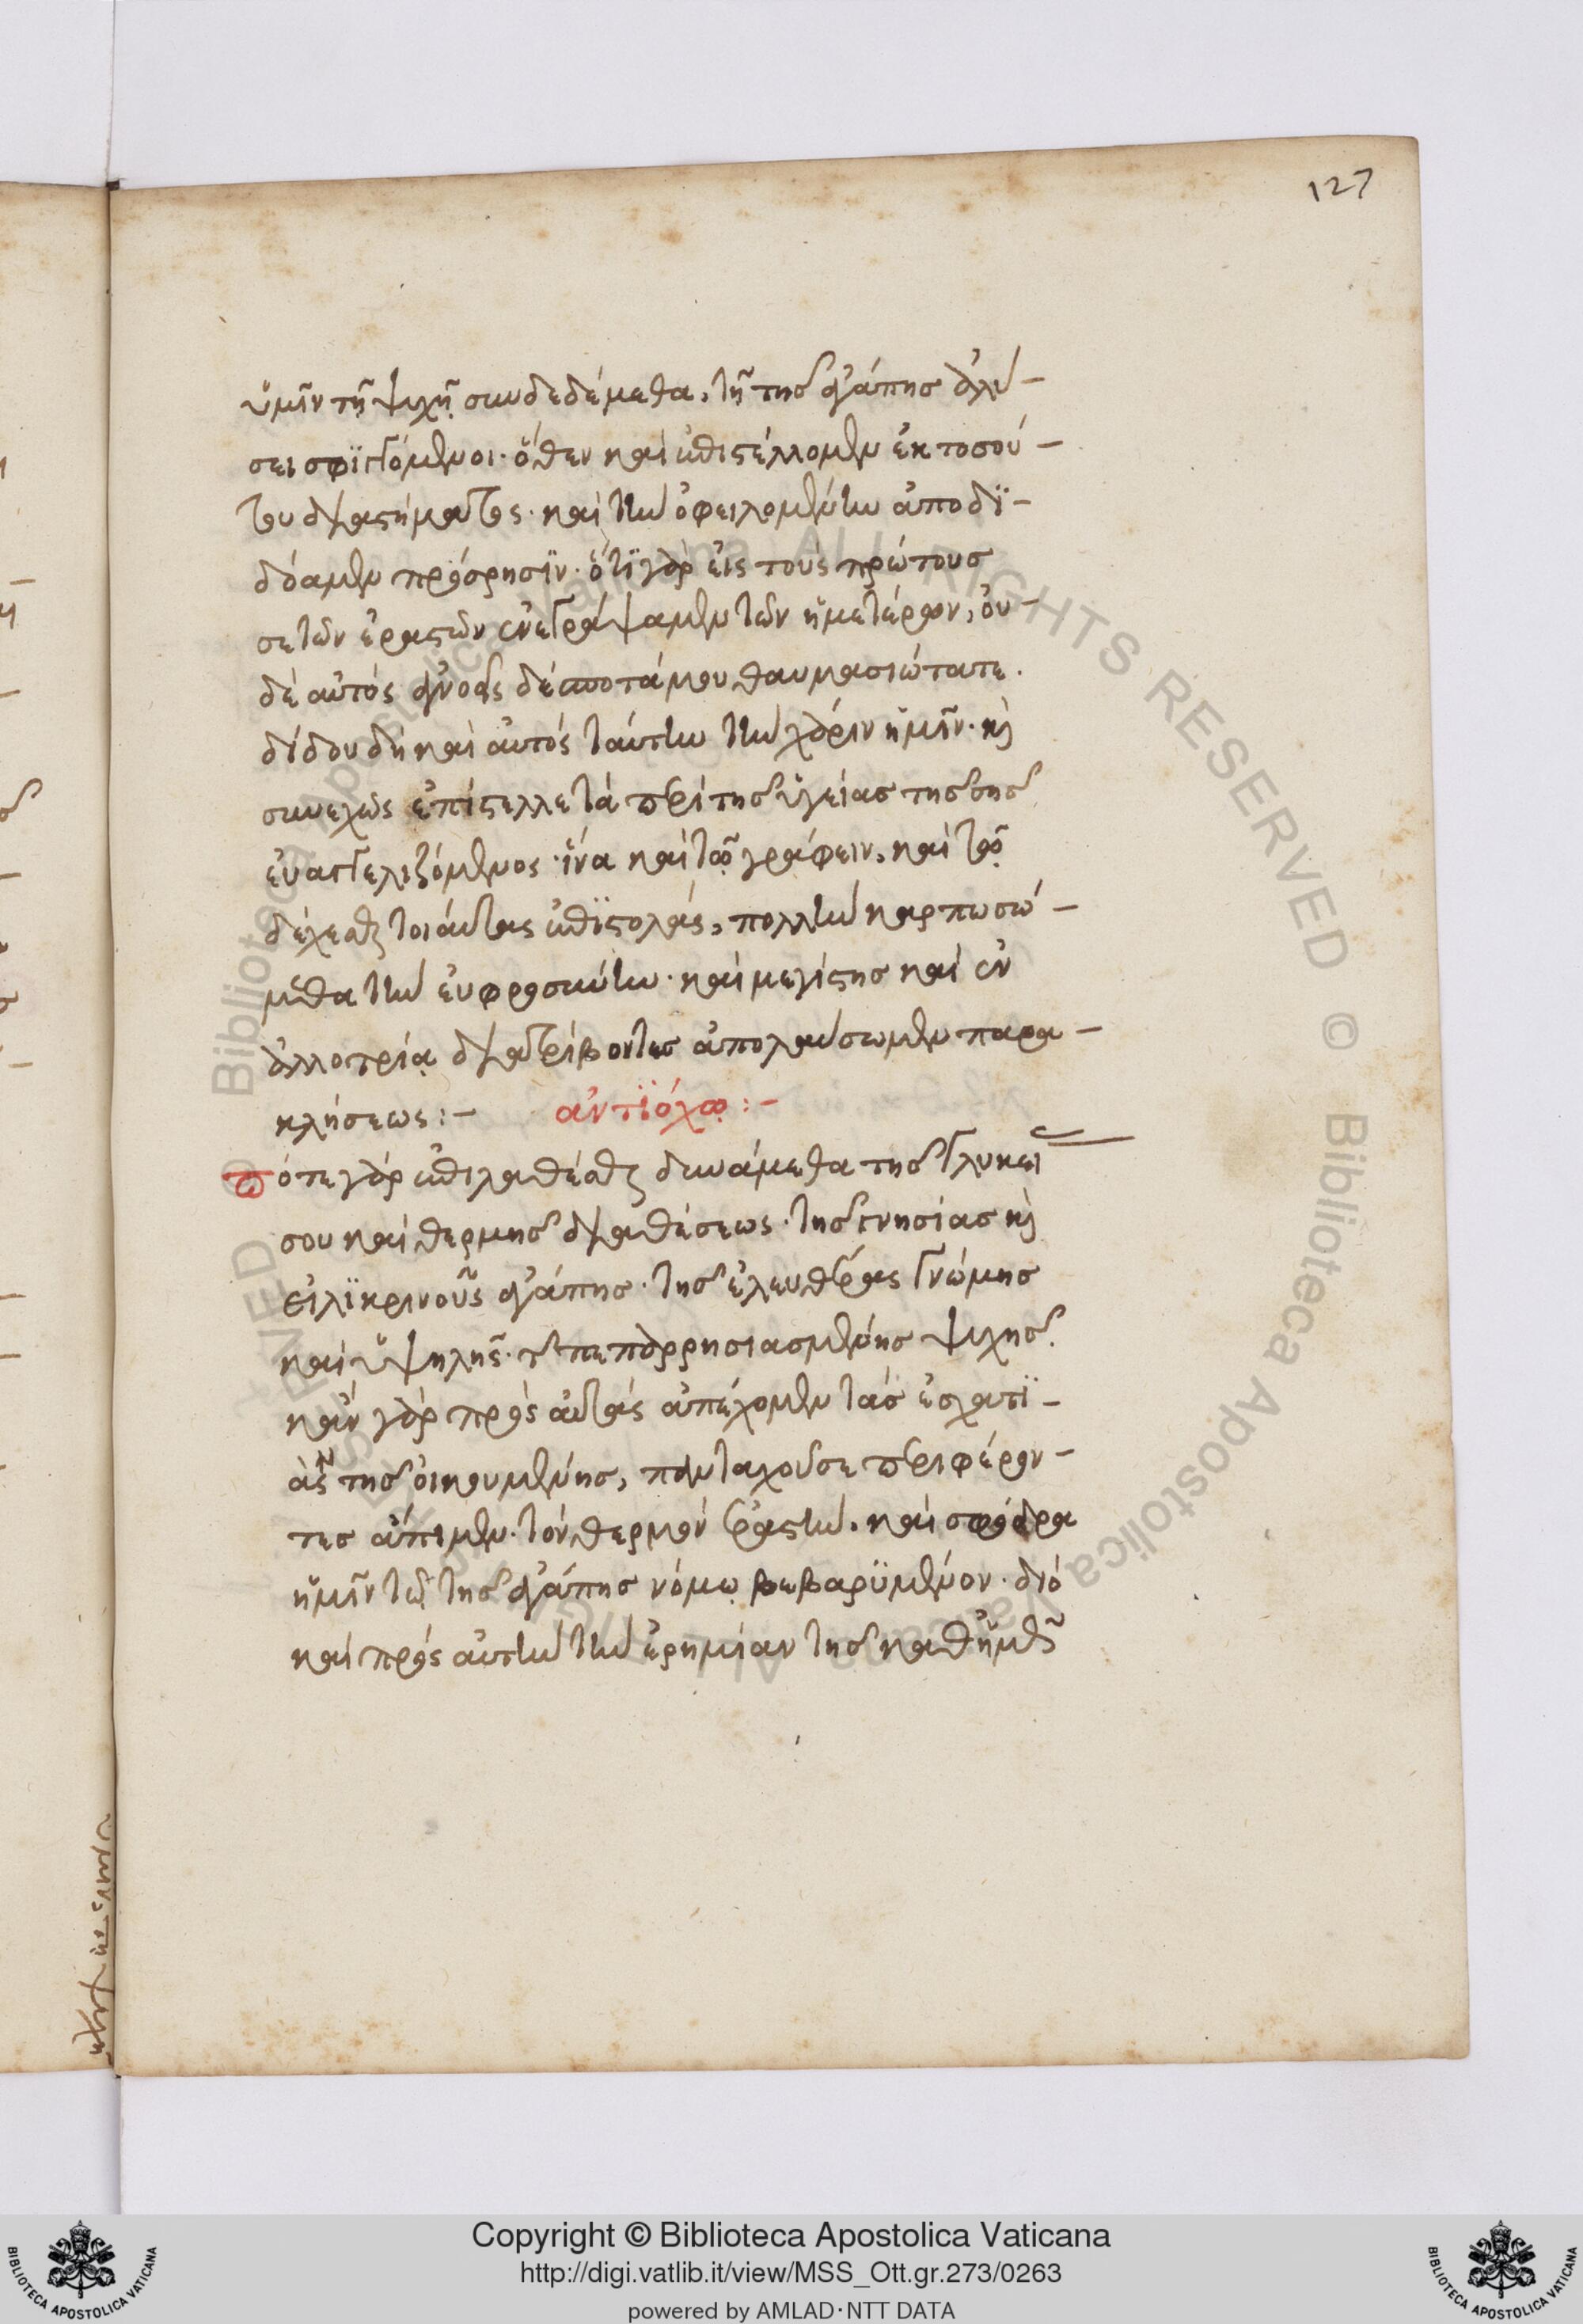 127
ὑμῖν τῇ ψυχῇ συνδεδέμεθα, τῇ τῆς ἀγάπης ἁλύ-
σει σφιγγόμενοι. ὅθεν καὶ ἐπιστέλλομεν ἐκ τοσού-
του διαστήματος. καὶ τὴν ὀφειλομένην ἀποδϊ-
δόαμεν πρόσρησϊν. ὅτϊ γὰρ εἰς τοὺς πρώτους
σε τῶν ἐραστῶν ἐνεγράψαμεν τῶν ἡμετέρων, οὐ-
δὲ αὐτὸς ἀγνοεῖς δέσποτά μου θαυμασιώτατε.
δίδου δὴ καὶ αὐτὸς ταύτην τὴν χάριν ἡμῖν. καὶ
συνεχῶς ἐπίστελλε τὰ περὶ τῆς ὑγείας τῆς σῆς
εὐαγγελιζόμενος. ἵνα καὶ τῷ γράφειν, καὶ τῷ
δέχεσθαι τοιαύτας ἐπϊστολὰς, πολλὴν καρπωσώ-
μεθα τὴν εὐφροσύνην. καὶ μεγίστης καὶ ἐν
ἀλλοτρίᾳ διατρίβοντες ἀπολαύσωμεν παρα-
κλήσεως:-
ἀντϊόχῳ:-
πότε γὰρ ἐπιλαθέσθαι δυνάμεθα τῆς γλυκεί
σου καὶ θερμῆς διαθέσεως. τῆς γνησίας καὶ
εἰλϊκρινοῦς ἀγάπης. τῆς ἐλευθέρας γνώμης
καὶ ὑψηλῆς. τῆς πεπαρρησιασμένης ψυχῆς.
κἂν γὰρ πρὸς αὐτὰς ἀπέχομεν τὰς ἐσχατϊ-
ὰς τῆς οἰκουμένης, πανταχοῦ σε περιφέρον-
τες ἄπιμεν. τὸν θερμὸν ἐραστὴν. καὶ σφόδρα
ἡμῖν τῷ τῆς ἀγάπης νόμῳ βεβαρϋμένον. διὸ
καὶ πρὸς αὐτὴν τὴν ἐρημίαν τῆς καθ' ἡμᾶς
Copyright © Biblioteca Apostolica Vaticana
http://digi.vatlib.it/view/MSS_Ott.gr.273/0263
powered by AMLAD·NTT DATA